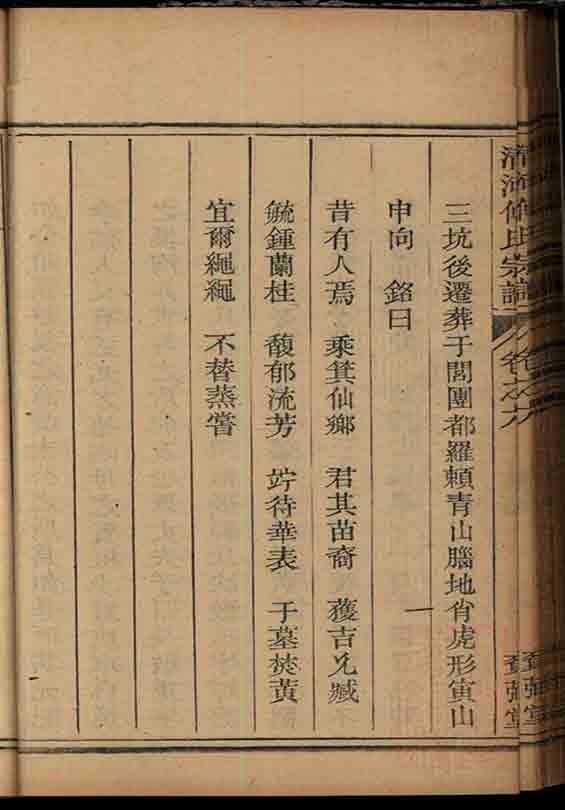 清河張氏宗譜 卷之六
三坑後遷葬于閭團都羅賴青山腦地肖虎形寅山
申向 銘曰
昔有人焉 乘箕仙鄉 君其苗裔 獲吉允臧
毓鍾蘭桂 馥郁流芳 竚待華表 于墓焚黃
宜爾繩繩 不替蒸嘗